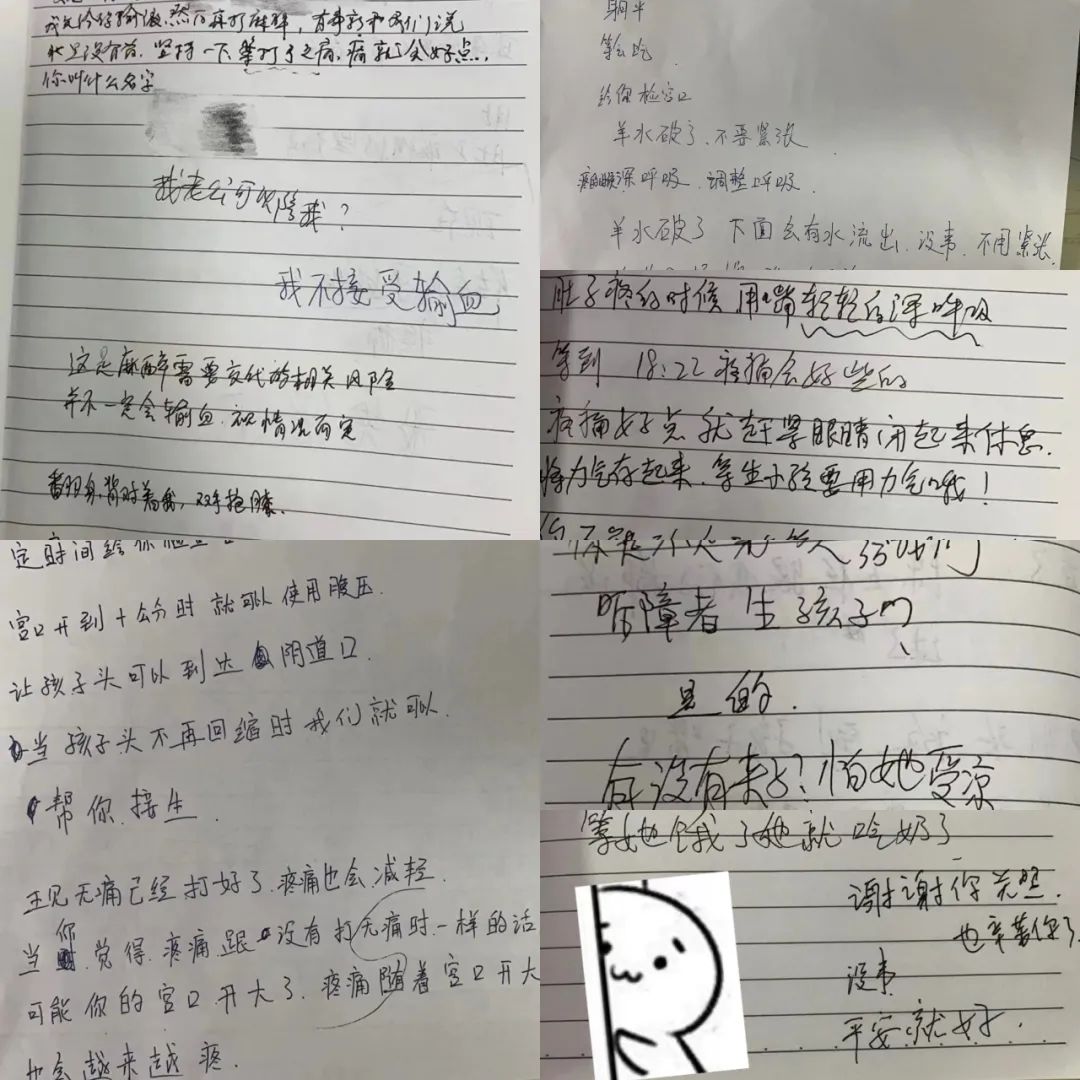 我先给你输液.然后再打麻醉,有事就和我们说
坚持一下.等打了之后.痛就会好点,
你叫什么名字
我老公可以陪我?
我不接受输血
这是麻醉需要交代的相关风险
并不一定会输血.视情况而定
翻身,背对着我,双手抱膝.
躺平
等会吃.
给你检宫口
羊水破了.不要紧张
深呼吸.调整呼吸.
羊水破了 下面会有水流出.没事.不用紧张.
肚子疼的时候 用嘴轻轻的深呼吸
等到 18:22 疼痛会好些的
疼痛好点 就赶紧眼睛闭起来休息.
将力气存起来.等生小孩要用力气哦!
定时间给你
宫口开到十公分时 就可以使用腹压.
让孩子头可以到达 阴道口.
当 孩子头不再回缩时 我们就可以
帮你 接生.
现无痛已经 打好了.疼痛也会减轻.
当你 觉得 疼痛 跟 没有 打无痛时 一样的话
可能 你的 宫口 开大了.疼痛 随着 宫口 开大
也会 越来越 疼.
听障者 生孩子吗
是的.
有没有来了?怕她受凉
等她饿了她就吃奶了
谢谢你关照.
也辛苦你了
没事
平安就好.